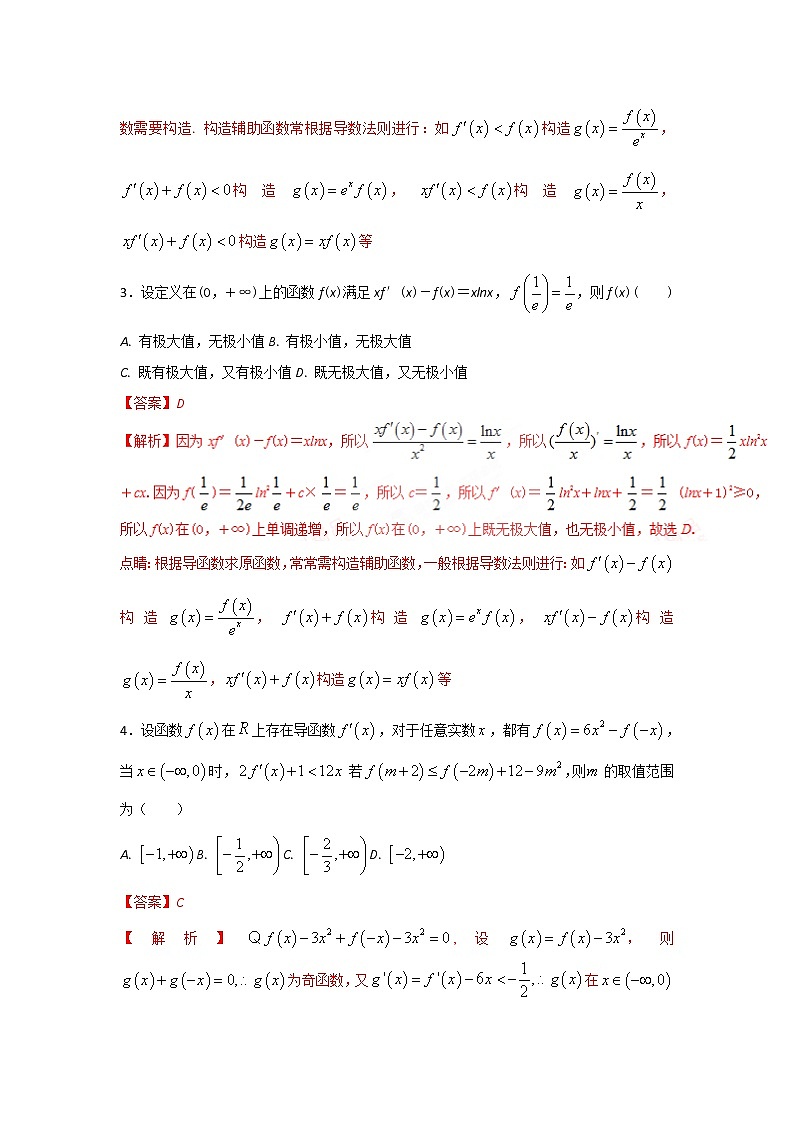 数需要构造. 构造辅助函数常根据导数法则进行：如 f′(x) < f(x) 构造 g(x) = f(x)/e^x，
f′(x) + f(x) < 0 构 造 g(x) = e^x f(x)， xf′(x) < f(x) 构 造 g(x) = f(x)/x，
xf′(x) + f(x) < 0 构造 g(x) = xf(x) 等
3．设定义在(0，+∞)上的函数 f(x)满足 xf′(x)－f(x)＝xlnx，f(1/e) = 1/e，则 f(x)(　　)
A. 有极大值，无极小值 B. 有极小值，无极大值
C. 既有极大值，又有极小值 D. 既无极大值，又无极小值
【答案】D
【解析】因为 xf′(x)－f(x)＝xlnx，所以 (xf′(x) − f(x))/x² = lnx/x，所以(f(x)/x)′ = lnx/x，所以 f(x)＝1/2 xln²x
+cx.因为 f(1/e)＝1/2e ln²1/e＋c×1/e＝1/e，所以 c＝1/2，所以 f′(x)＝1/2 ln²x＋lnx＋1/2＝1/2 (lnx＋1)²≥0，
所以 f(x)在(0，＋∞)上单调递增，所以 f(x)在(0，＋∞)上既无极大值，也无极小值，故选 D．
点睛：根据导函数求原函数，常常需构造辅助函数，一般根据导数法则进行：如 f′(x) − f(x)
构 造 g(x) = f(x)/e^x， f′(x) + f(x) 构 造 g(x) = e^x f(x)， xf′(x) − f(x) 构 造
g(x) = f(x)/x，xf′(x) + f(x) 构造 g(x) = xf(x) 等
4．设函数 f(x) 在 R 上存在导函数 f′(x)，对于任意实数 x，都有 f(x) = 6x² − f(−x)，
当 x∈(−∞,0) 时，2f′(x)+1<12x 若 f(m+2) ≤ f(−2m)+12−9m²，则m 的取值范围
为（　　）
A. [−1,+∞) B. [−1/2,+∞) C. [−2/3,+∞) D. [−2,+∞)
【答案】C
【 解 析 】 Q f(x)−3x²+f(−x)−3x²=0， 设 g(x)=f(x)−3x²， 则
g(x)+g(−x)=0,∴ g(x) 为奇函数，又 g'(x)=f'(x)−6x<−1/2,∴ g(x) 在 x∈(−∞,0)